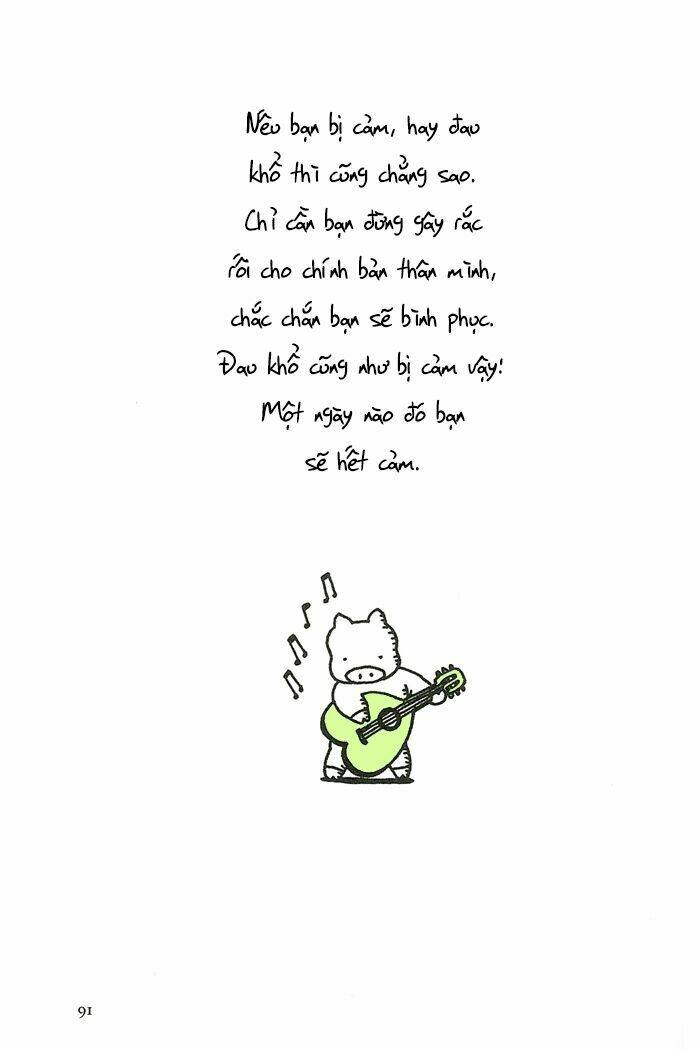 Nếu bạn bị cảm, hay đau
khổ thì cũng chẳng sao.
Chỉ cần bạn đừng gây rắc
rối cho chính bản thân mình,
chắc chắn bạn sẽ bình phục.
Đau khổ cũng như bị cảm vậy!
Một ngày nào đó bạn
sẽ hết cảm.
91